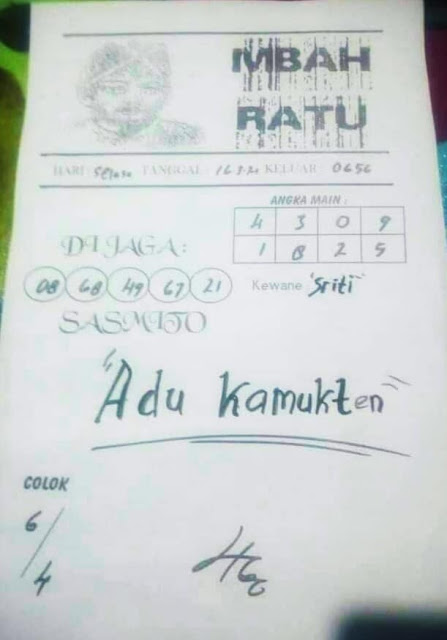 MBAH
RATU
HARI: Selasa TANGGAL: KELUAR: 0656
ANGKA MAIN :
4 3 0 9
1 8 2 5
DI JAGA:
08 68 49 67 21
Kewane "Sriti"
SASMITO
"Adu Kamukten"
COLOK
6/4